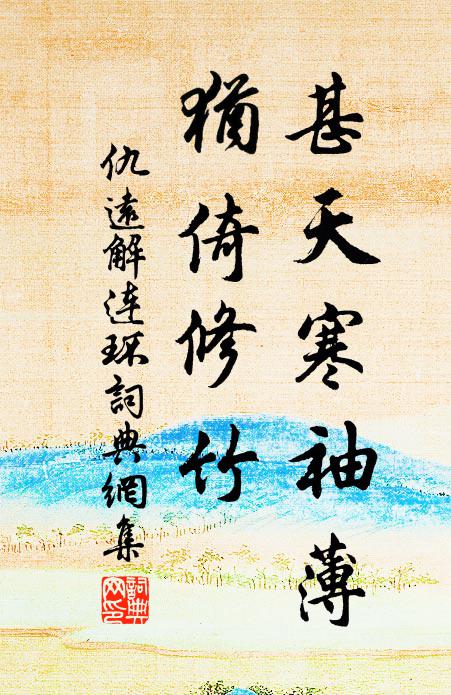 甚天寒袖薄
猶倚修竹
仇遠解連环詞典網集
詞典